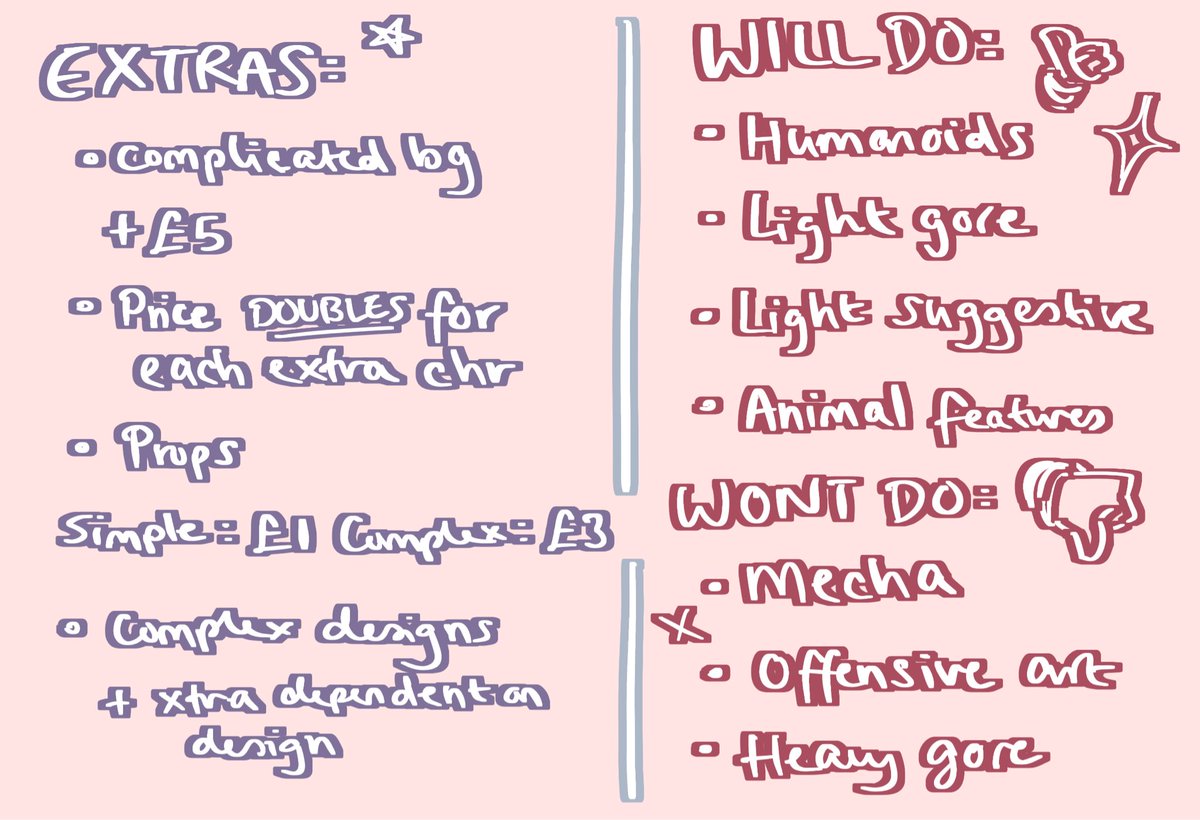 EXTRAS:
• Complicated bg
+£5
• Price DOUBLES for
each extra chr
• Props
Simple:£1 Complex:£3
• Complex designs
+ xtra dependent on
design
WILL DO:
• Humanoids
• Light gore
• Light suggestive
• Animal features
WONT DO:
• Mecha
• Offensive art
• Heavy gore